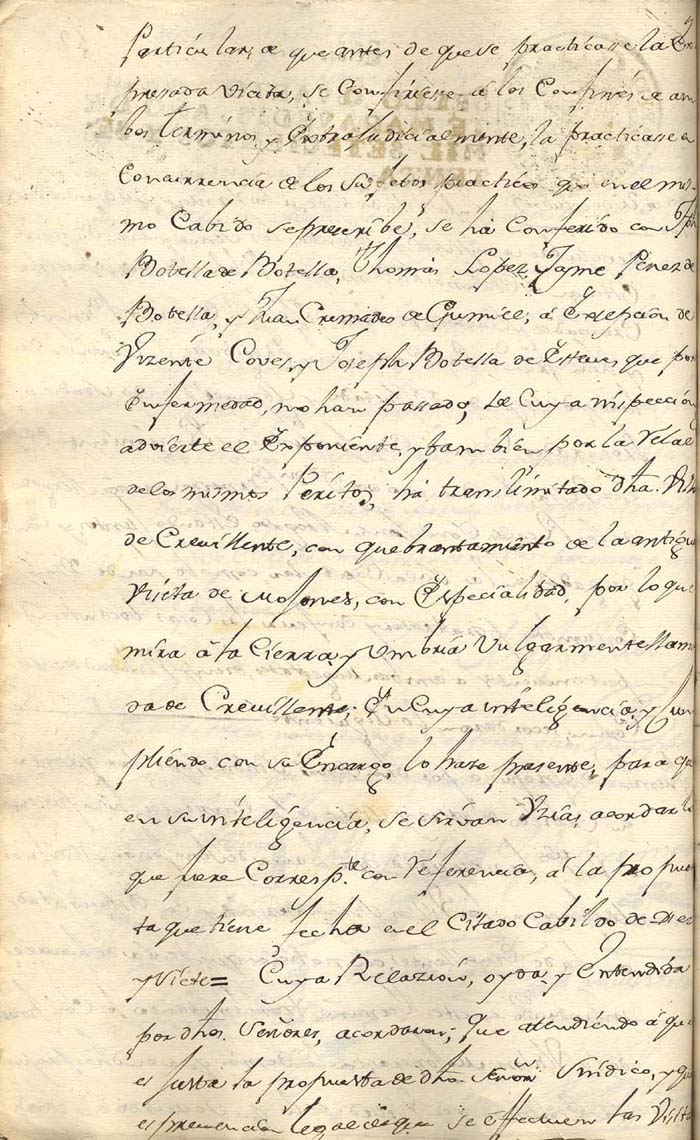 Particular, de que antes de que se practicasse la Ex
presada Vicita, se Confiriesse, á los Confines de am
bos terminos, y Extrajudicialmente, la practicasse a
Concurrencia de los Sujetos practicos que en el mis
mo Cabildo se prescribe, se há Conferido con
Botella de Botella, Thomás Lopez, Jayme Perez de
Botella, y Juan Cremades de Gumiel, á Exsepsion de
Vizente Coves, y Joseph Botella de Esteve, que por
Enfermedad, no han passado, de Cuya inspeccion
advierte el Exponente, y tambien por la Relaz
de los mismos Peritos, há translimitado dha. Villa
de Crevillente, con quebrantamiento de la antigua
Vicita de Mojones, con Especialidad, por lo que
mira á la Cierra, y Umbria Vulgarmente llama
da de Crevillente; En Cuya inteligencia, y Cum
pliendo con su Encargo, lo haze presente, para que
en su inteligencia, se sirvan Vsias, acordar lo
que fuere Corresp.te con Referencia, á la propues
ta que tiene fecha en el Citado Cabildo de Diez
y Siete= Cuya Relazion, oyda, y Entendida
por dhos. Señores, acordaron; que atendiendo á que
es Justa la propuesta de dho. Señor Sindico, y que
es prevencion legal el que se effectuen las Visitas